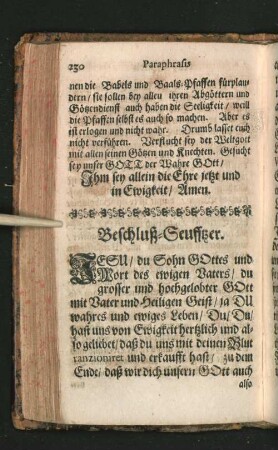 230 Paraphrasis
nen die Babels und Baals-Pfaffen fürplau-
dern/ sie sollen bey allen ihren Abgöttern und
Götzendienst auch haben die Seligkeit/ weill
die Pfaffen selbst es auch so machen. Aber es
ist erlogen und nicht wahr. Drumb lasset euch
nicht verführen. Verflucht sey der Weltgott
mit allen seinen Götzen und Knechten. Gesucht
sey unser GOTT der Wahre GOtt/
Ihm sey allein die Ehre jetzt und
in Ewigkeit/ Amen.
Beschluß-Seufftzer.
JESU/ du Sohn GOttes und
Wort des ewigen Vaters/ du
grosser und hochgelobter GOtt
mit Vater und Heiligen Geist/ ja DU
wahres und ewiges Leben/ Du/ Du/
hast uns von Ewigkeit hertzlich und al-
so geliebet/ daß du uns mit deinen Blut
ranzioniret und erkaufft hast/ zu dem
Ende/ daß wir dich unsern GOtt auch
also